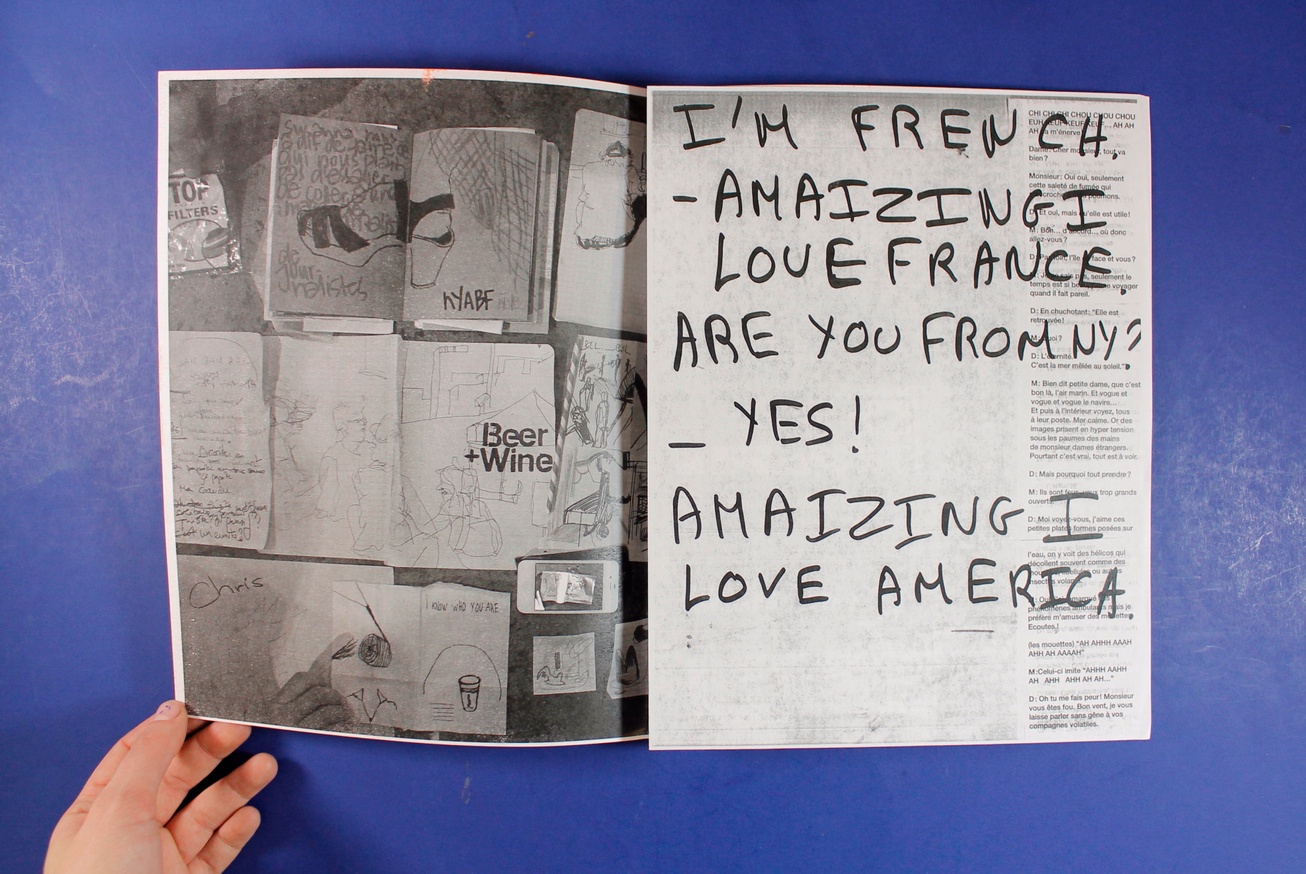 TOP
FILTERS
journalistd
NYABF
Beer
+Wine
Chris
I KNOW WHO YOU ARE
I'M FRENCH.
- AMAIZING I
LOVE FRANCE.
ARE YOU FROM NY?
_ YES!
AMAIZING I
LOVE AMERICA.
CHI CHI CHI CHOU CHOU CHOU
EUH KEUF KEUF KEUF... AH AH
AH m'énerve
Dame: Cher monsieur, tout va
bien ?
Monsieur: Oui oui, seulement
cette saleté de fumée qui
poumons.
D: Et oui, mais qu'elle est utile!
M: Bon... d'accord..., où donc
allez-vous ?
face et vous ?
pas, seulement le
temps est si voyager
quand il fait pareil.
D: En chuchotant: "Elle est
retrouvée!
M: Quoi ?
D: L'éternité.
C'est la mer mêlée au soleil."
M: Bien dit petite dame, que c'est
bon là, l'air marin. Et vogue et
vogue et vogue le navire...
Et puis à l'intérieur voyez, tous
à leur poste. Mer calme. Or des
images prisent en hyper tension
sous les paumes des mains
de monsieur dames étrangers.
Pourtant c'est vrai, tout est à voir.
D: Mais pourquoi tout prendre ?
M: Ils sont trop grands
D: Moi voyez-vous, j'aime ces
petites plates formes posées sur
l'eau, on y voit des hélicos qui
décollent souvent comme des
ou
insectes
phénomènes je
préfère m'amuser des mouettes.
Ecoutes !
(les mouettes) "AH AHHH AAAH
AHH AH AAAAH"
M:Celui-ci imite "AHHH AAHH
AH AHH AHH AH AH..."
D: Oh tu me fais peur! Monsieur
vous êtes fou. Bon vent, je vous
laisse parler sans gêne à vos
compagnes volatiles.